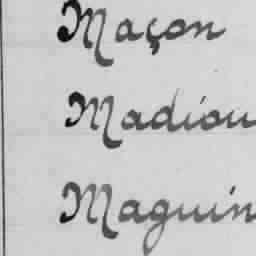 Maçon
Madiou
Maguin